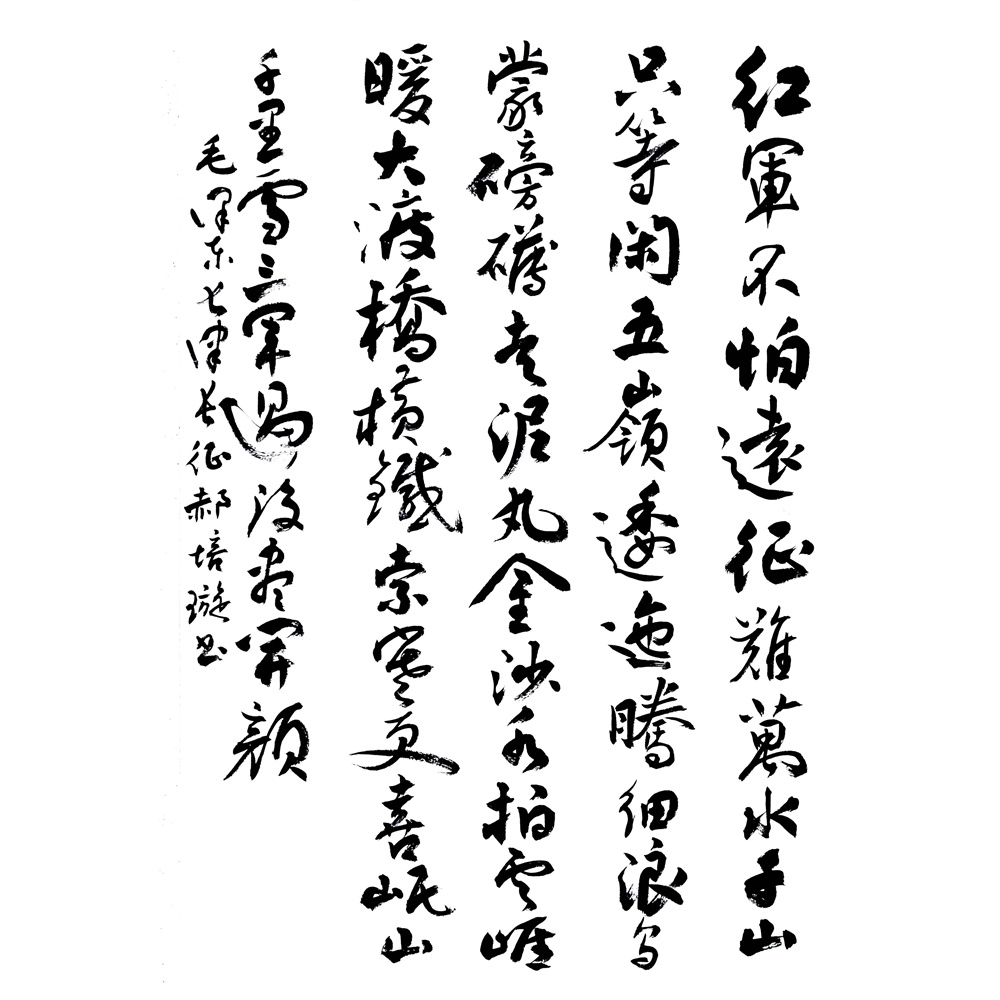 紅軍不怕遠征難萬水千山
只等閑五嶺逶迤騰細浪烏
蒙磅礴走泥丸金沙水拍雲崖
暖大渡橋橫鐵索寒更喜岷山
千里雪三軍過後盡開顏
毛澤東七律長征郝培璇書